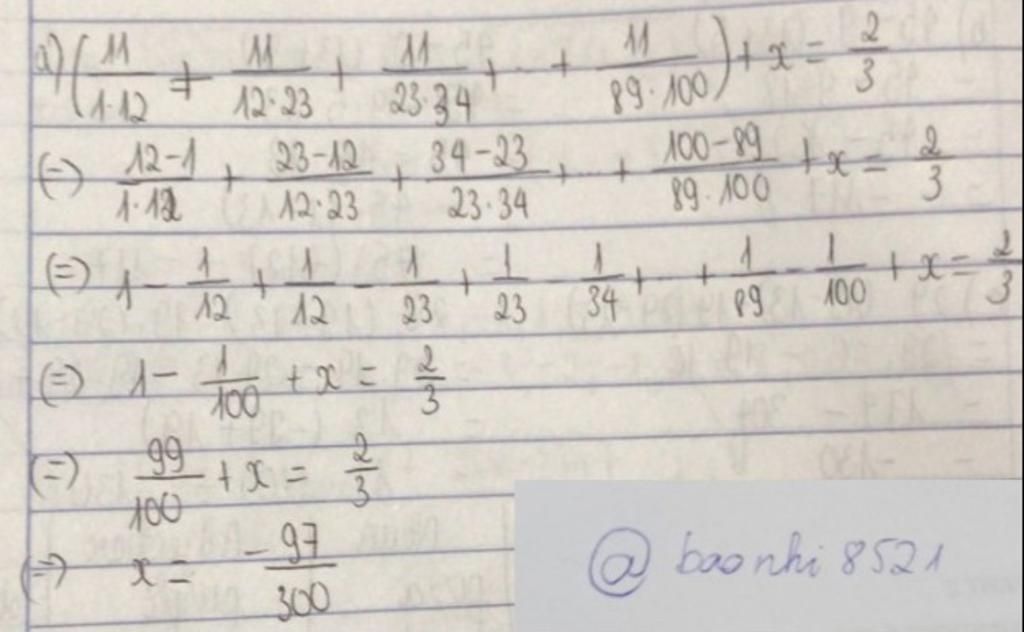 a) (11/1·12 + 11/12·23 + 11/23·34 + ... + 11/89·100) + x = 2/3
(=) 12-1/1·12 + 23-12/12·23 + 34-23/23·34 + ... + 100-89/89·100 + x = 2/3
(=) 1 - 1/12 + 1/12 - 1/23 + 1/23 - 1/34 + ... + 1/89 - 1/100 + x = 2/3
(=) 1 - 1/100 + x = 2/3
(=) 99/100 + x = 2/3
(=) x = -97/300
@ baonhi 8521